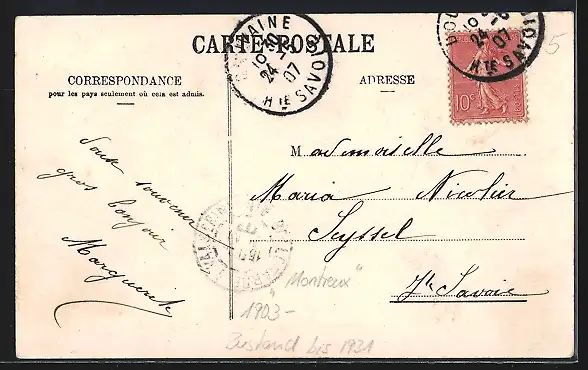 CARTE POSTALE
CORRESPONDANCE
pour les pays seulement où cela est admis.
ADRESSE
24
07
Hte SAVOIE
24
07
Hte SAVOIE
10c
5
Doux souvenir
gros bonjour
Marguerite
Mademoiselle
Maria Nicolier
Seyssel
Hte Savoie
"Montreux"
1903-
Zustand bis 1931